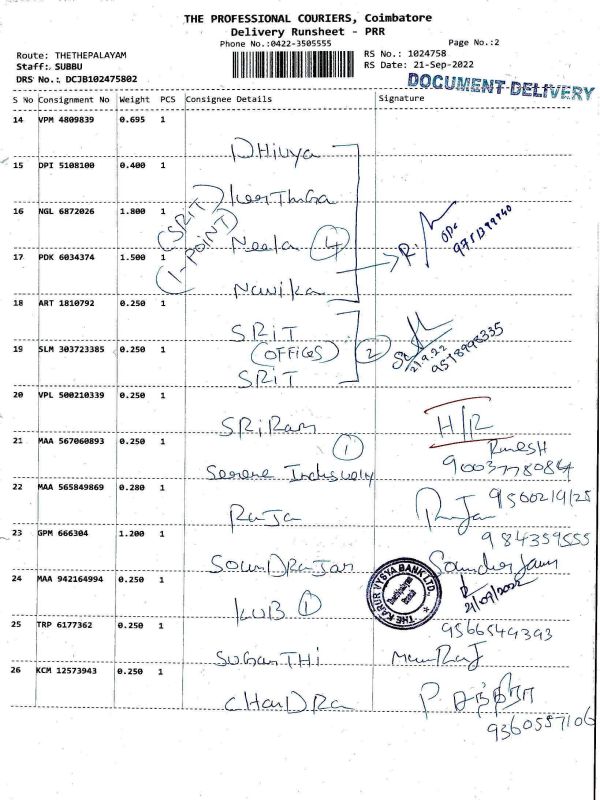 THE PROFESSIONAL COURIERS, Coimbatore
Delivery Runsheet - PRR
Phone No.:0422-3505555
Page No.:2
Route: THETHEPALAYAM
RS No.: 1024758
Staff: SUBBU
RS Date: 21-Sep-2022
DRS No.: DCJB102475802
DOCUMENT DELIVERY
S No Consignment No Weight PCS Consignee Details Signature
14 VPM 4809839 0.695 1
DHivya
15 DPI 5108100 0.400 1
KeerThiGa
16 NGL 6872026 1.800 1
(SRiT)
(1-POINT)
Neela (4)
17 PDK 6034374 1.500 1
Navika
18 ART 1810792 0.250 1
SRiT
19 SLM 303723385 0.250 1
(OFFICES) (2)
21.9.22
9578998335
SRiT
20 VPL 500210339 0.250 1
SRiRam H/R
21 MAA 567060893 0.250 1
(1)
Ramesh
9003778084
Serene Industry
22 MAA 565849869 0.280 1
RaJa Raja
23 GPM 666304 1.200 1
9843595555
SounDRaJan
24 MAA 942164994 0.250 1
THE KARUR VYSYA BANK LTD.
21/09/2022
KVB (1)
25 TRP 6177362 0.250 1
9566549393
SuGanTHi
26 KCM 12573943 0.250 1
CHanDRa P. சந்திரா
9360557106